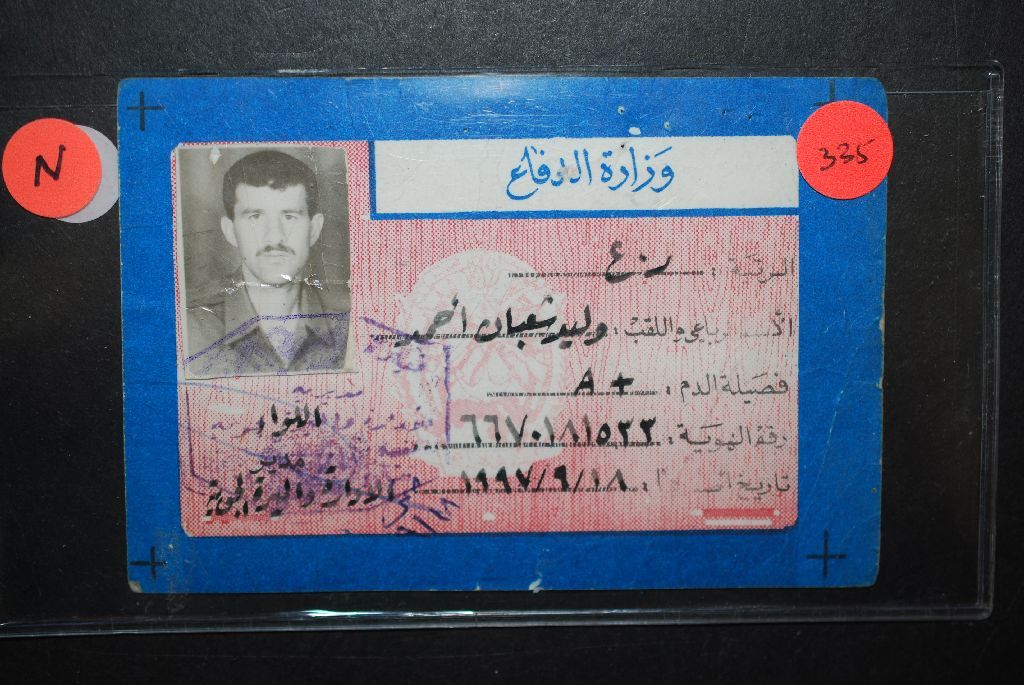 N
335
وزارة الدفاع
المرتبة : ر.ع
الأسم رباعي واللقب : وليد شعبان أحمد
فصيلة الدم : A+
رقم الهوية : ٦٦٧٠١٨١٥٢٢
تاريخ ١٩٩٧/٩/١٨
مديرية
اللواء
مدير
الادارة والميرة